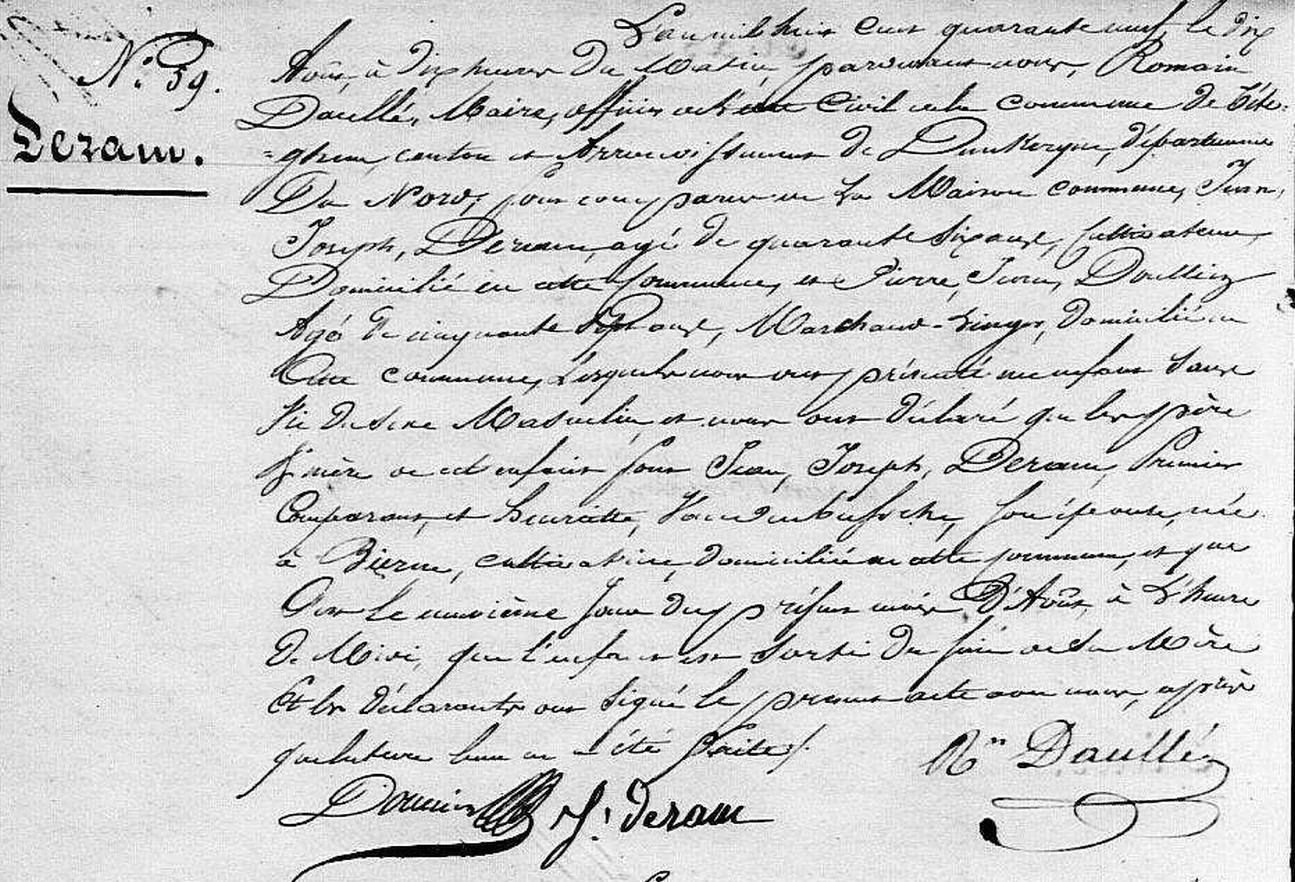 N.° 59.
Deram.
L'an mil huit cent quarante neuf, le dix
Août, à dix heures du Matin, pardevant nous, Romain
Daullé, Maire, officier de l'état Civil de la commune de Téte-
=ghem, canton et Arrondissement de Dunkerque, département
Du Nord, sont comparus en la Maison commune, Jean,
Joseph, Deram, agé de quarante six ans, Cultivateur,
Domicilié en cette Commune, et Pierre, Jean,
Agé de cinquante sept ans, Marchand-Linger, domicilié en
Cette commune, Lesquels nous ont présenté un enfant Sans
Vie du sexe Masculin et nous ont déclaré que les père
& mère de cet enfant sont Jean, Joseph, Deram, Premier
Comparant, et Henriette, son épouse, née
à Bierne, cultivatrice, domiciliée en cette commune, et que
C'est le neuvième jour du présent mois D'Août, à L'heure
De Midi, que l'enfant est Sorti du sein de Sa Mère
Et les déclarants ont Signé le présent acte avec nous, après
que lecture leur en a été faite /.
R.n Daullé
J. deram